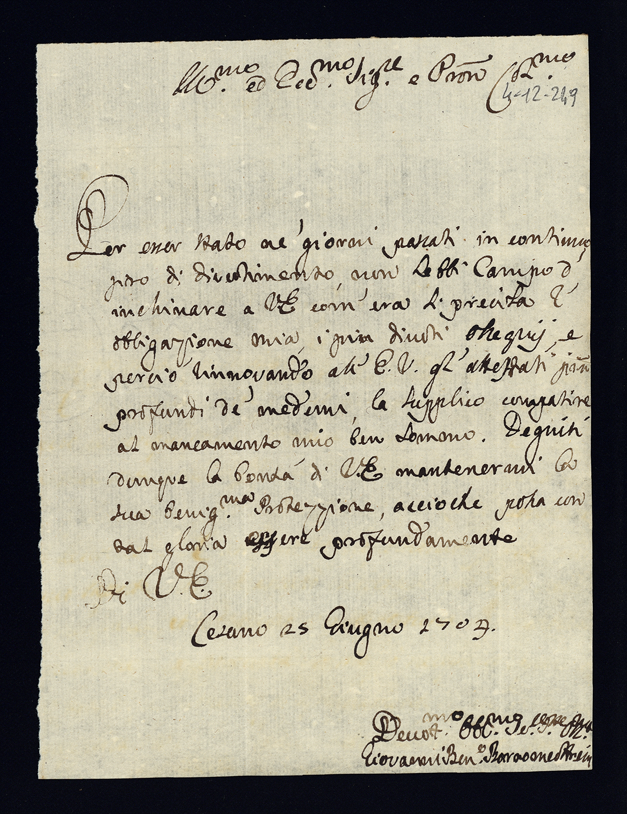 Ill.mo ed Ecc.mo Sig.re e Pron Col.mo
4-12-249
Per esser stato ne' giorni passati in continuo
giro di divertimento non hebbi Campo d'
inchinare a V.E. com' era di precisa l'
obbligazione mia, i più divoti ossequij, e
perciò rinnovando all' E.V. gl' attestati più
profundi de' medemi, la supplico compatire
al mancamento mio ben sommo. Degnisi
dunque la bontà di V.E. mantenermi la
sua benig.ma Protezzione, accioche possa con
tal gloria essere profundamente
Di V.E.
Cesano 25 Giugno 170
Devot.mo Obl.mo
Giovanni Ben.o